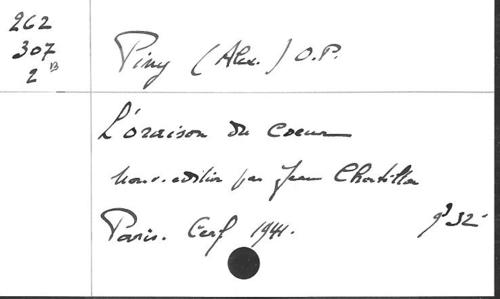 262
307
2 B
Piny (Alex.) O.P.
L'oraison du Coeur
Nouv. edition par Jean Chatillon
Paris. Cerf 1941.